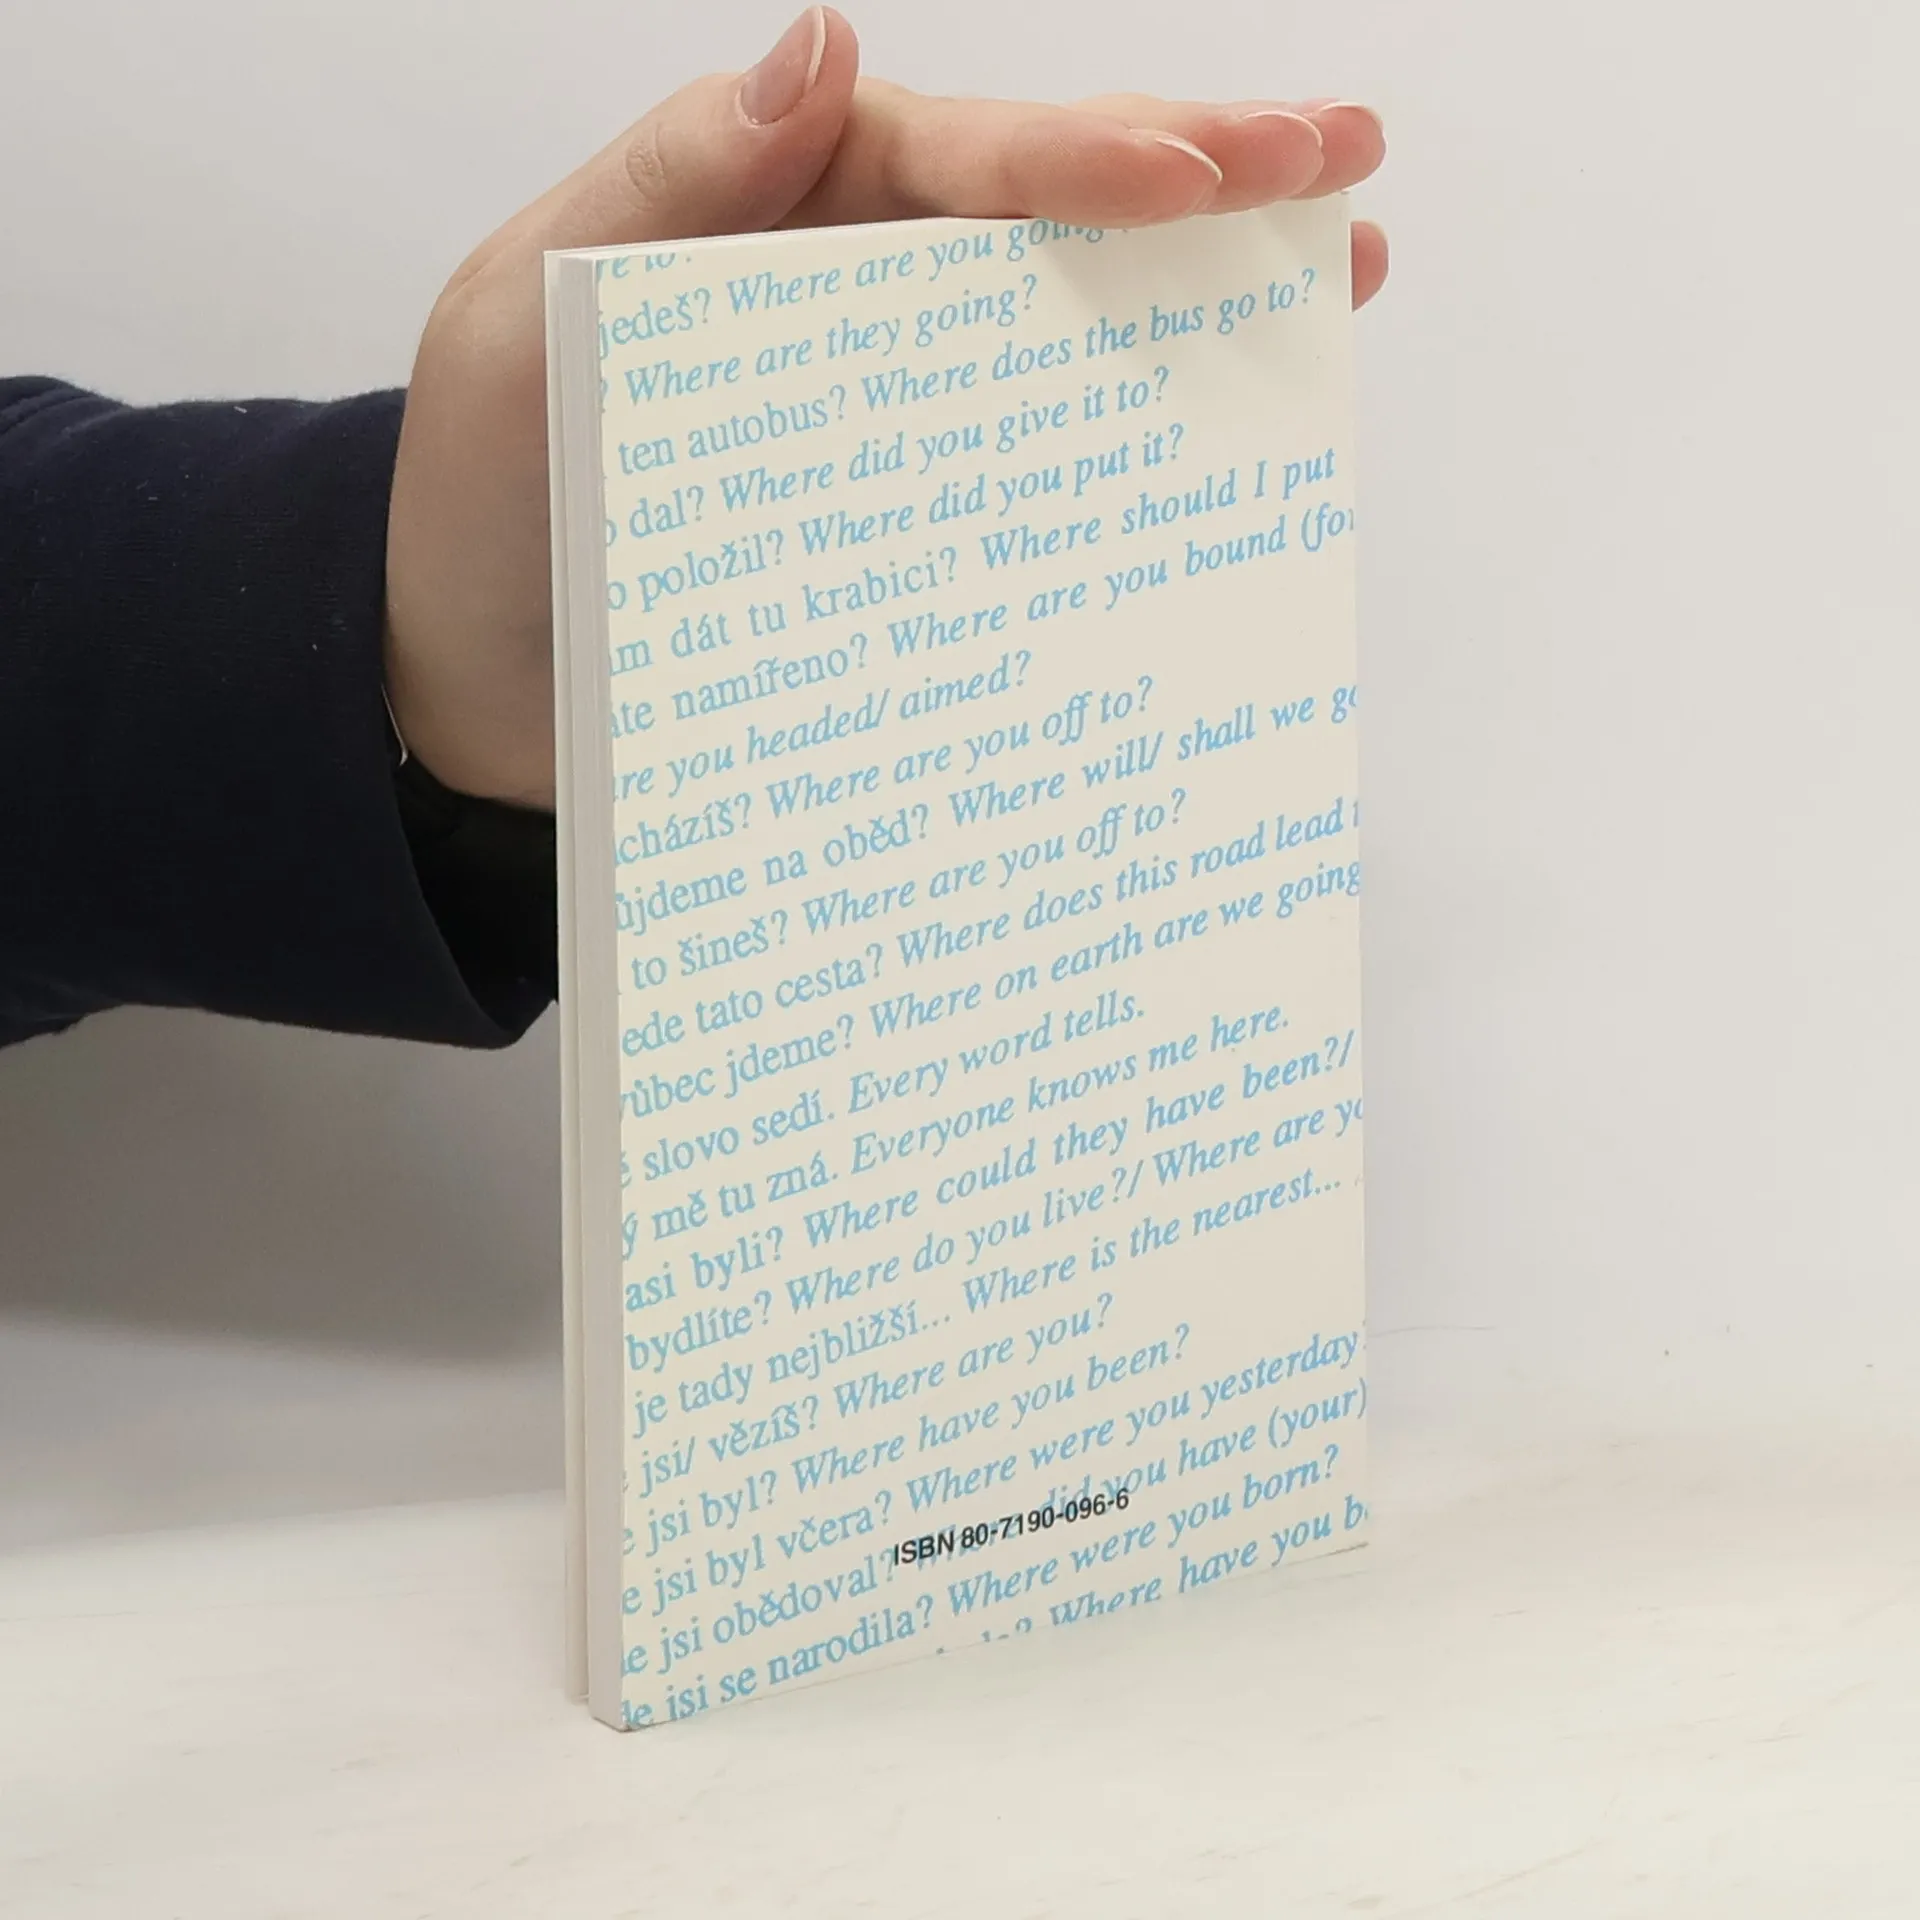 re to?
jedeš? Where are you going
? Where are they going?
ten autobus? Where does the bus go to?
o dal? Where did you give it to?
o položil? Where did you put it?
ám dát tu krabici? Where should I put
áte namířeno? Where are you bound (for
are you headed/ aimed?
cházíš? Where are you off to?
ůjdeme na oběd? Where will/ shall we go
to šineš? Where are you off to?
ede tato cesta? Where does this road lead
vůbec jdeme? Where on earth are we going
é slovo sedí. Every word tells.
ý mě tu zná. Everyone knows me here.
asi byli? Where could they have been?/
bydlíte? Where do you live?/ Where are yo
je tady nejbližší... Where is the nearest...
jsi/ vězíš? Where are you?
e jsi byl? Where have you been?
e jsi byl včera? Where were you yesterday?
e jsi obědoval? Where did you have (your)
de jsi se narodila? Where were you born?
Where have you b
ISBN 80-7190-096-6